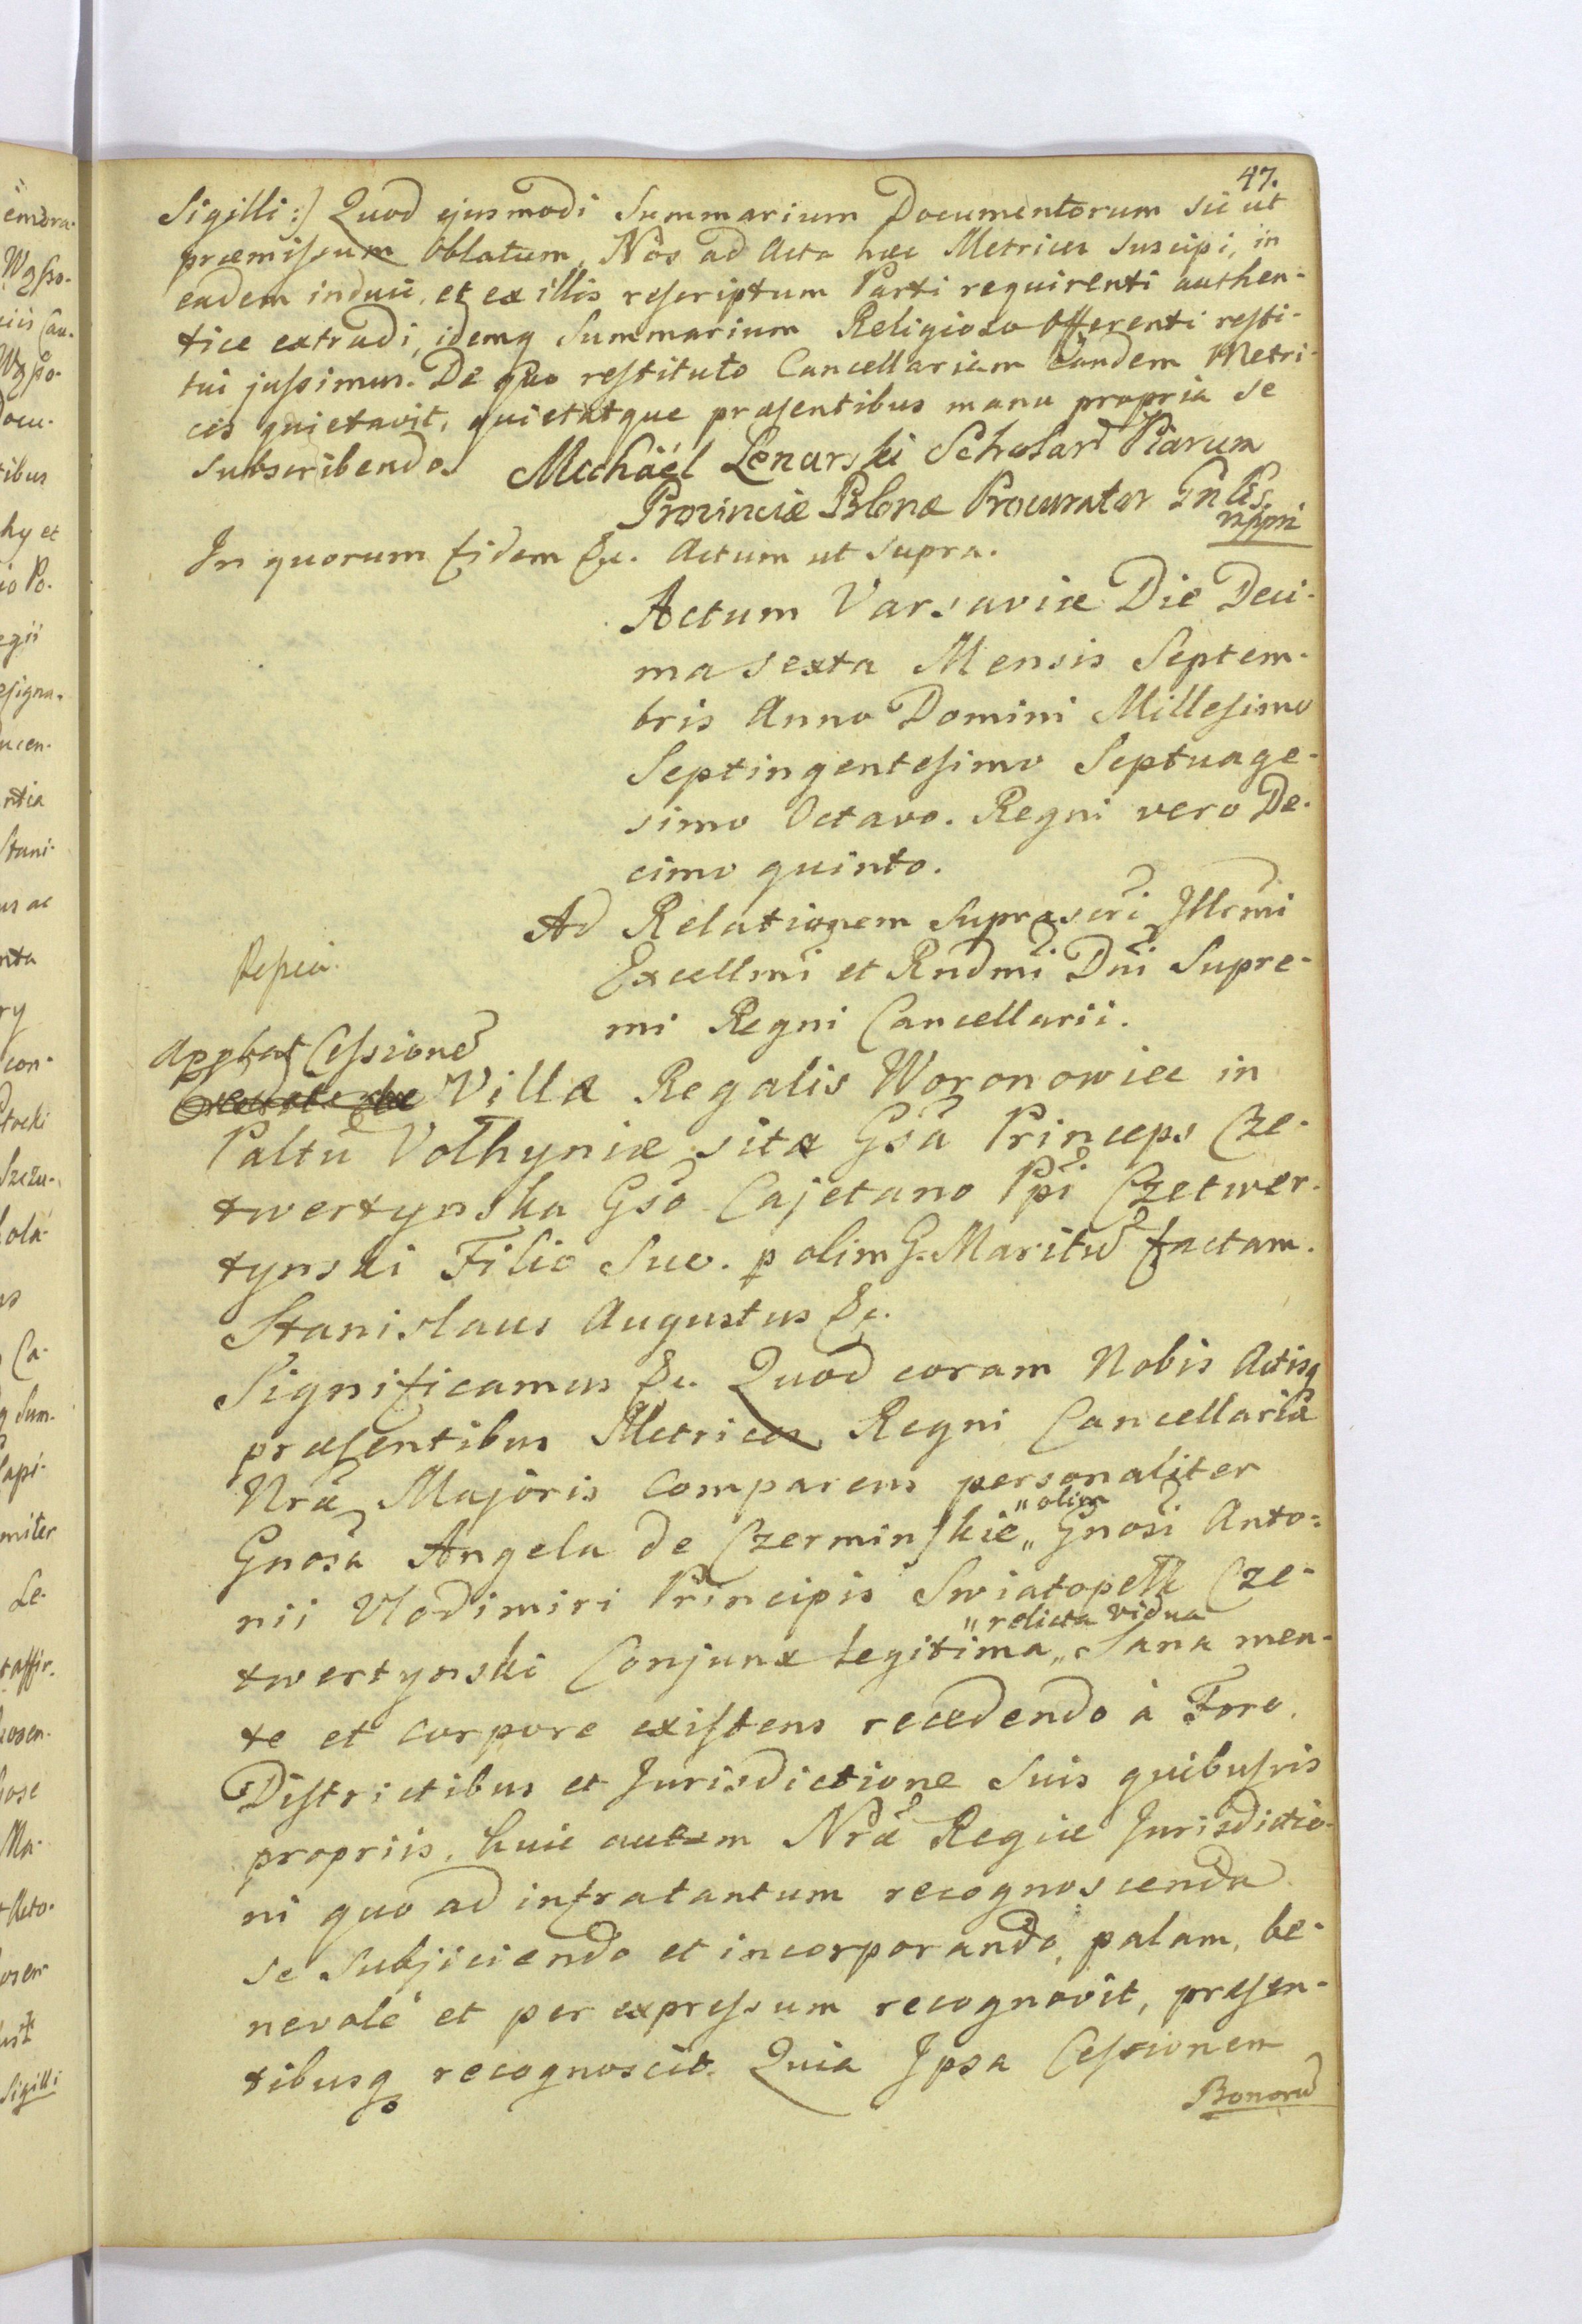 47.
Sigilli:) Quod ejusmodi Summarium Documentorum sic ut
præmissum Oblatum, Nos ad Acta hæc Metrices suscipi, in
eadem induci, et ex illis rescriptum Parti requirenti authen-
tice extradi, idemq Summarium Religioso Offerenti resti-
tui jussimus. De quo restituto Cancellariam Eandem Metri-
ces quietavit, quietatque præsentibus manu propria se
subscribendo. Michäel Lenarski Scholar Piarum
Provinciæ Polonæ Procurator
mppri
In quorum fidem &c. Actum ut supra.
Actum Varsaviæ Die Deci-
ma sexta Mensis Septem-
bris Anno Domini Millesimo
Septingentesimo Septuage-
simo Octavo. Regni vero De-
cimo quinto.
Ad Relationem suprascri Illrmi
Excellmi et Rndmi Dni Supre-
mi Regni Cancellarii.
Appbat Cessione
Villæ Regalis Woronowice in
Paltu Volhyniæ sitæ Gsa Princeps Cze-
twertynska Gso Cajetano Ppi Czetwer-
tynski Filio Suo. p olim G. Maritu factam.
Stanislaus Augustus &c.
Significamus &c. Quod coram Nobis Actisq
præsentibus Metrices Regni Cancellariæ
Nræ Majoris Comparens personaliter
Gnosa Angela de Czerminskie „olim„ Gnosi Anto=
nii Vlodimiri Principis Swiatopełk Cze-
twertynski Conjunx legitima „relicta vidua„ Sana men-
te et corpore existens recedendo à Foro,
Districtibus et Jurisdictione Suis quibusvis
propriis, huic autem Nræ Regiæ Jurisdictio-
ni quo ad infratantum recognoscenda
se subjiciendo et incorporando, palam, be-
nevole et per expressum recognovit, præsen-
tibusq recognoscit. Quia Ipsa Cessionem
Bonoru